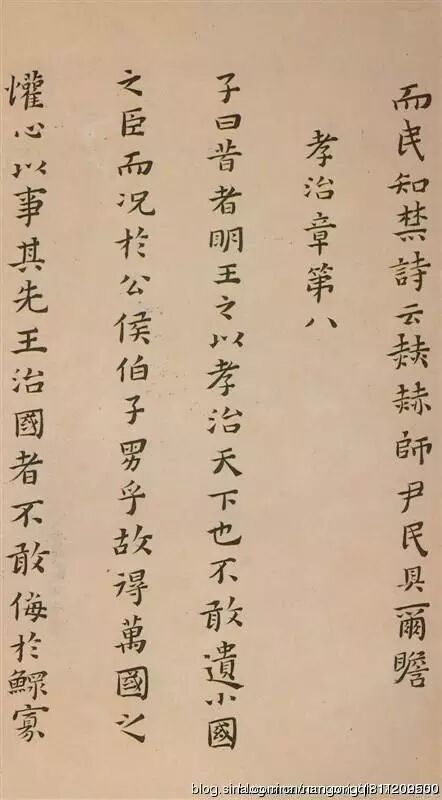 而民知禁詩云赫赫師尹民具爾瞻
孝治章第八
子曰昔者明王之以孝治天下也不敢遺小國
之臣而况於公侯伯子男乎故得萬國之
懽心以事其先王治國者不敢侮於鰥寡